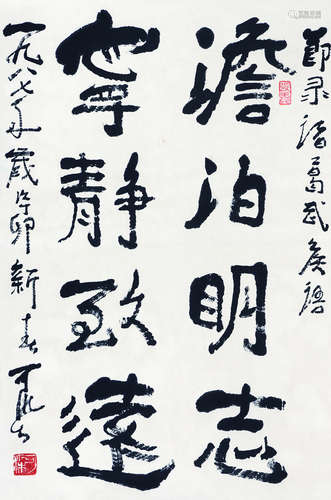 節录諸葛武侯語
澹泊明志
寧静致遠
一九八七年歲丁卯新春可染